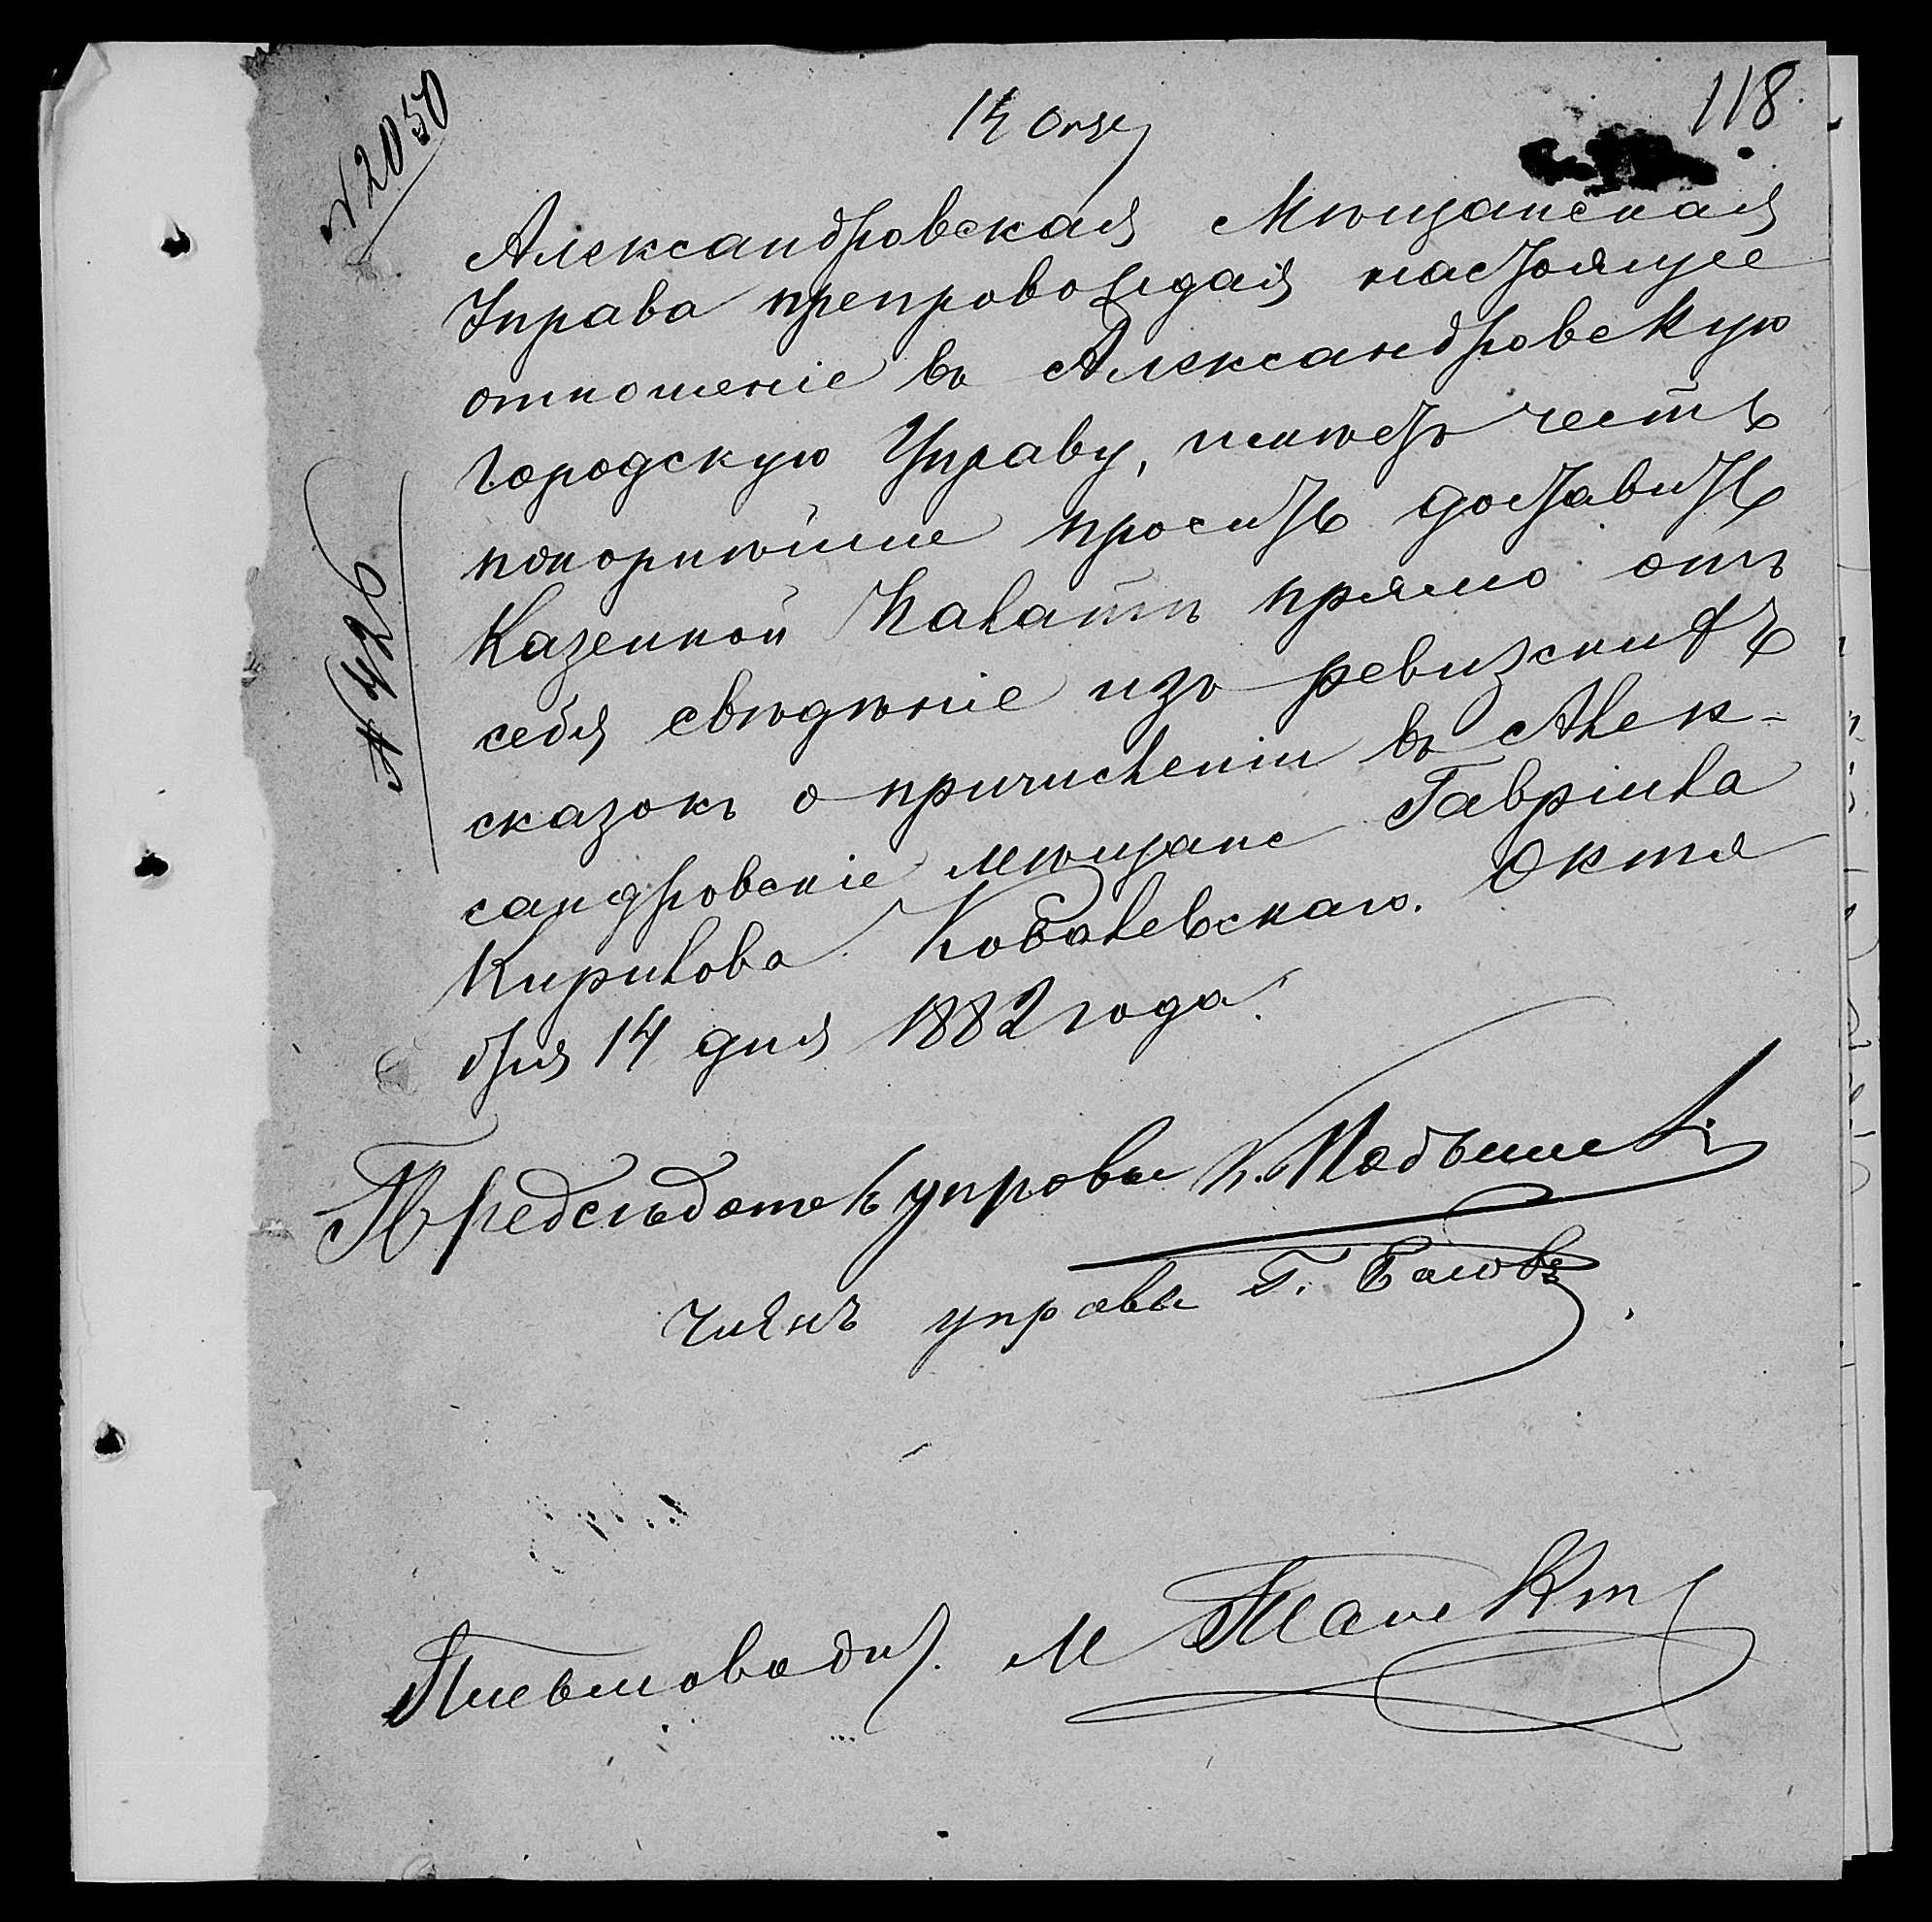 118
№ 2050
14 Окт
Александровская Мѣщанская
Управа препровождая настоящее
отношеніе въ Александровскую
городскую Управу, имѣетъ честь
покорнѣйше просить доставить
Казенной Палатѣ прямо отъ
себя свѣдѣніе изъ ревизскихъ
сказокъ о причисленіи въ Алек-
сандровскіе мѣщане Гавріила
Кирилова Ковалевскаго. Октя
бря 14 дня 1882 года.
№ 426
Предсѣдатель управы К.
Членъ управы Г.
Письмовод. М